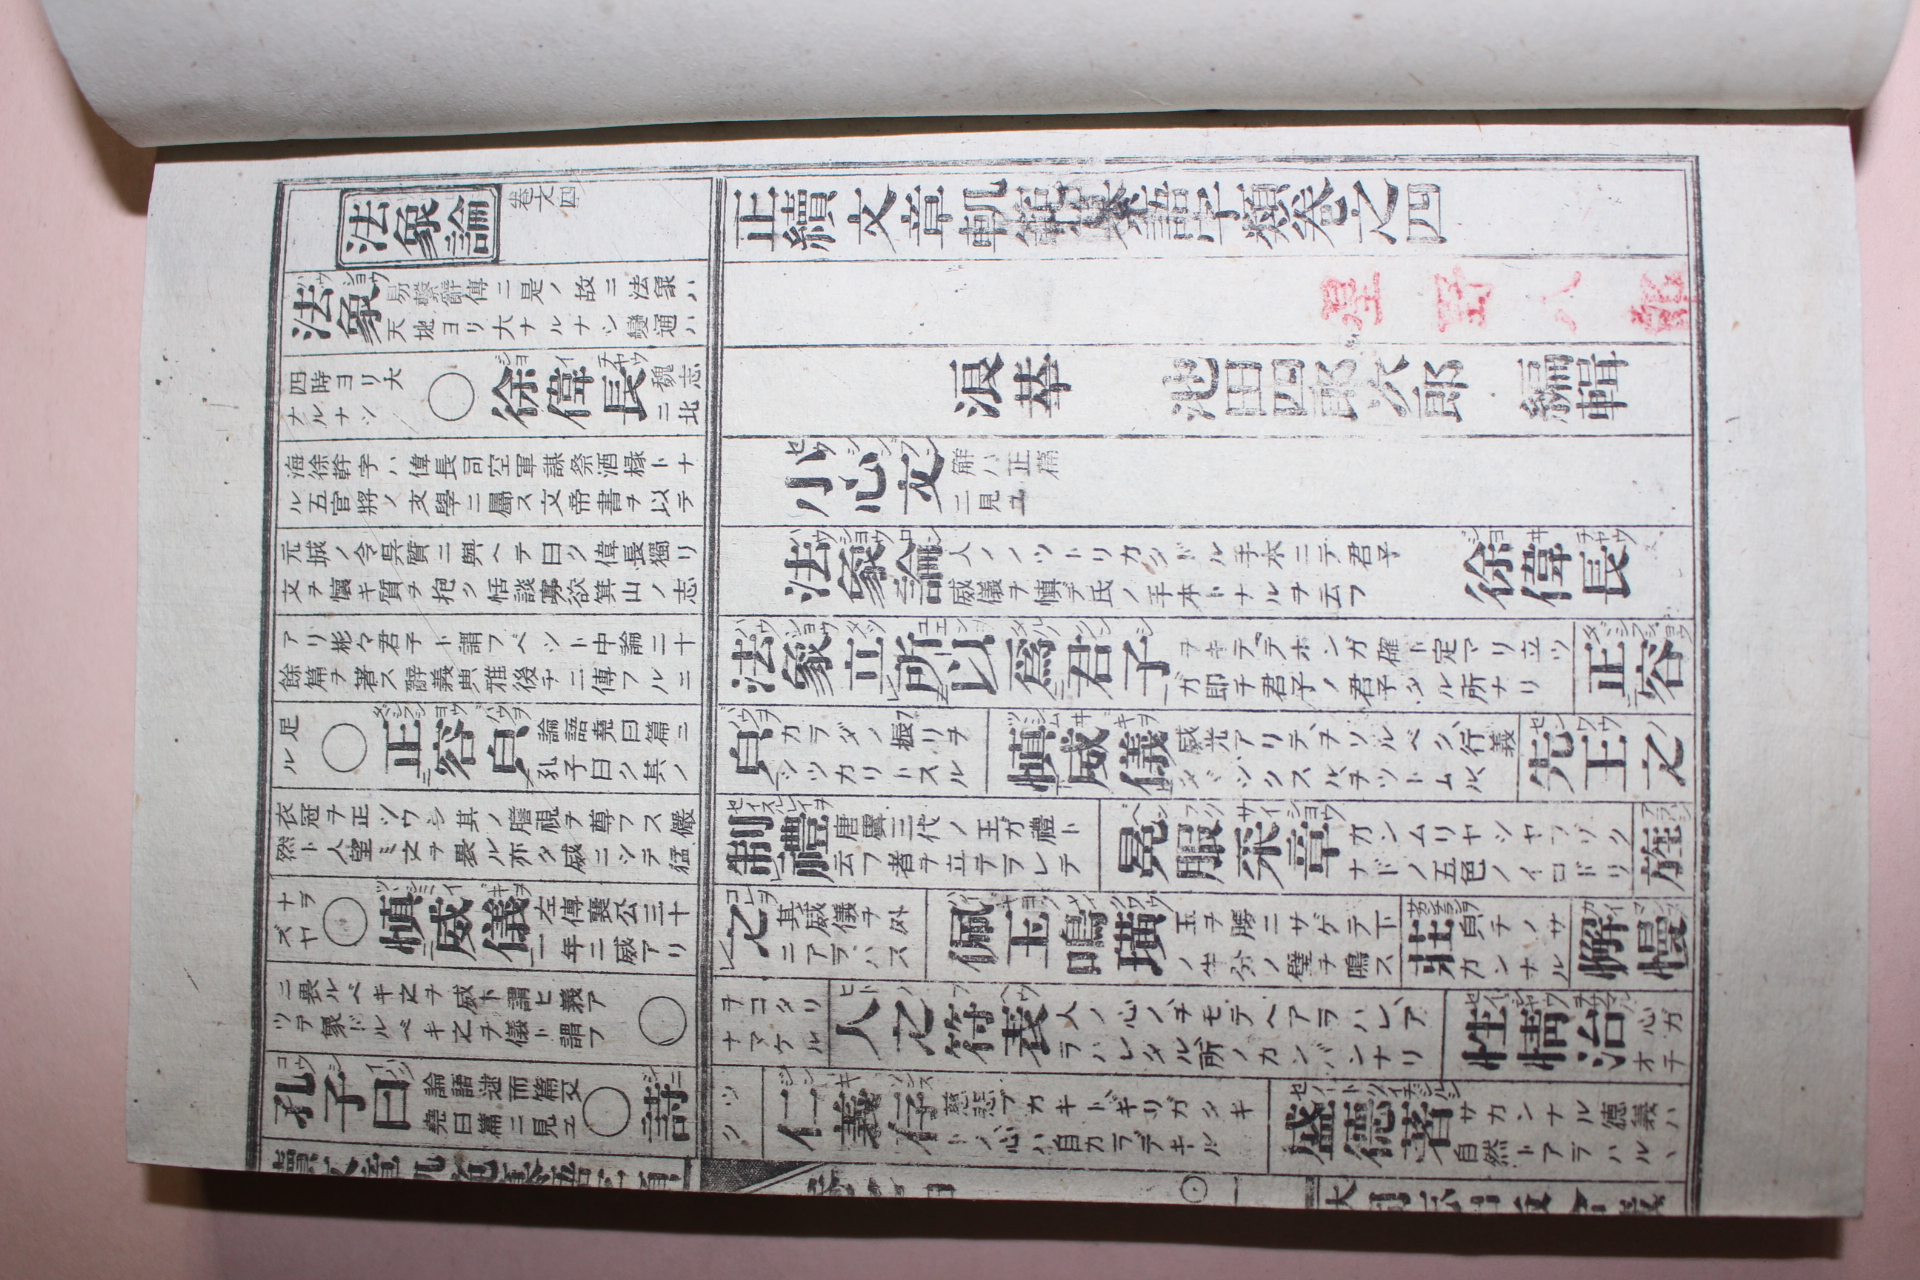 法象論
卷之四
法象 易繋辭傳ニ是ノ故ニ法象ハ
天地ヨリ大ナルナシ變通ハ
四時ヨリ大
ナルナシ
○徐偉長 魏志
ニ北
海徐幹字ハ偉長司空軍謀祭酒掾トナ
ル五官將ノ文學ニ屬ス文帝書ヲ以テ
元城ノ令呉質ニ與ヘテ曰ク偉長獨リ
文ヲ懷キ質ヲ抱ク恬談寡欲箕山ノ志
アリ彬々君子ト謂フベシト中論二十
餘篇ヲ著ス辭義典雅後チニ傳フルニ
足
ル
○正容皃 論語堯曰篇ニ
孔子曰ク其ノ
衣冠ヲ正ツウシ其ノ瞻視ヲ尊フス儼
然ト人望ミ之ヲ畏ル亦タ威ニシテ猛
ナラ
ズヤ
○慎威儀 左傳襄公三十
一年ニ威アリ
ニ畏ルベキ之ヲ威ト謂ヒ義ア
ツテ象ドルベキ之チ儀ト謂フ
○
孔子曰 論語述而篇又
堯曰篇ニ見ユ
○詩
正續文章軌範纂語字類卷之四
星野八郎
浪華 池田四郎次郎 編輯
小心文 解ハ正篇
ニ見ユ
法象論 人ノノツトリカタドル手本ニテ君子
威儀ヲ慎デ氏ノ手本トナルヲ云フ
徐偉長
法象立所以爲君子 ヲキテ、テホンガ確ト定マリ立ツ
ガ即チ君子ノ君子タル所ナリ
正容
皃 カラダノ振リヲ
シツカリトスル
慎威儀 威光アリテ、ヲソルベク、行義
タヾシクスル、ヲツトムル、
先王之
制禮 唐虞三代ノ王ガ禮ト
云フ者ヲ立テヲレテ
冕服采章 カンムリヤシヤウゾク
ナドノ五色ノイロドリ
旌
之 其威儀ヲ外
ニアラハス
佩玉鳴璜 玉ヲ腰ニサゲテ下
ノ半分ノ璧ヲ鳴ス
莊 皃チノサ
カンナル
懈慢
ヲコタリ
ナマケル
人之符表 人ノ心ノヲモテヘアラハレ、ア
ラハレタル、所ノカンバンナリ
性情治 心ガ
オチ
ツ
ク
仁義存 慈悲ブカキト、ギリガタキ
トノ心ハ自カラデキル
盛德著 サカンナル德義ハ
自然トアラハル、
續文章軌範纂語字類
卷之四
一
大同志出版合議